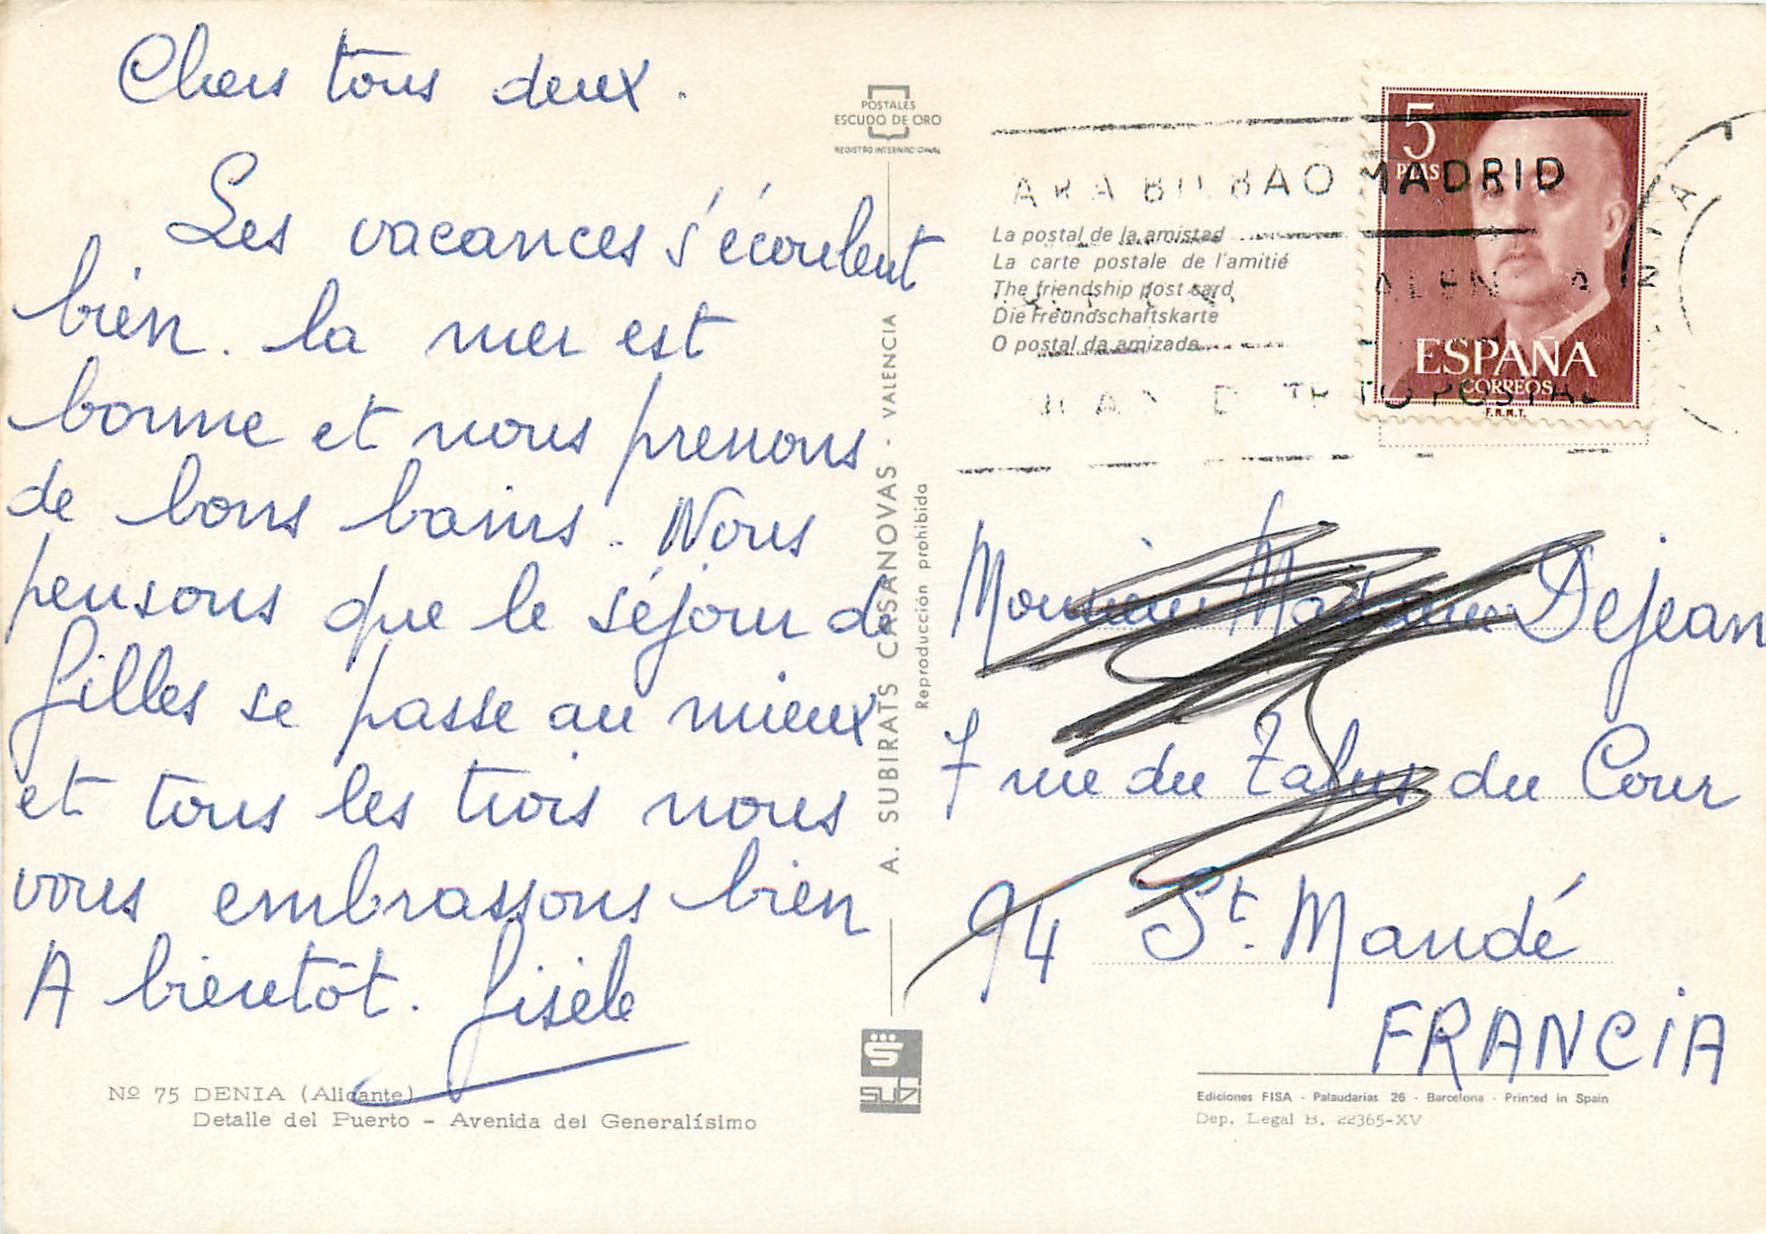 Chers tous deux.
Les vacances s'écoulent
bien. la mer est
bonne et nous prenons
de bons bains. Nous
pensons que le séjour de
Gilles se passe au mieux
et tous les trois nous
vous embrassons bien
A bientôt. Gisèle
Nº 75 DENIA (Alicante)
Detalle del Puerto – Avenida del Generalísimo
POSTALES
ESCUDO DE ORO
REGISTRO INTERNACIONAL
A. SUBIRATS CASANOVAS - VALENCIA
Reproducción prohibida
subi
La postal de la amistad
La carte postale de l'amitié
The friendship post card
Die Freundschaftskarte
O postal da amizada
BILBAO MADRID
POSTAL
5
PTAS
ESPAÑA
CORREOS
F.N.M.T.
Monsieur Madame Dejean
7 rue du Talus du Cour
94 St. Mandé
FRANCIA
Ediciones FISA - Palaudarias 26 - Barcelona - Printed in Spain
Dep. Legal B. 22365-XV